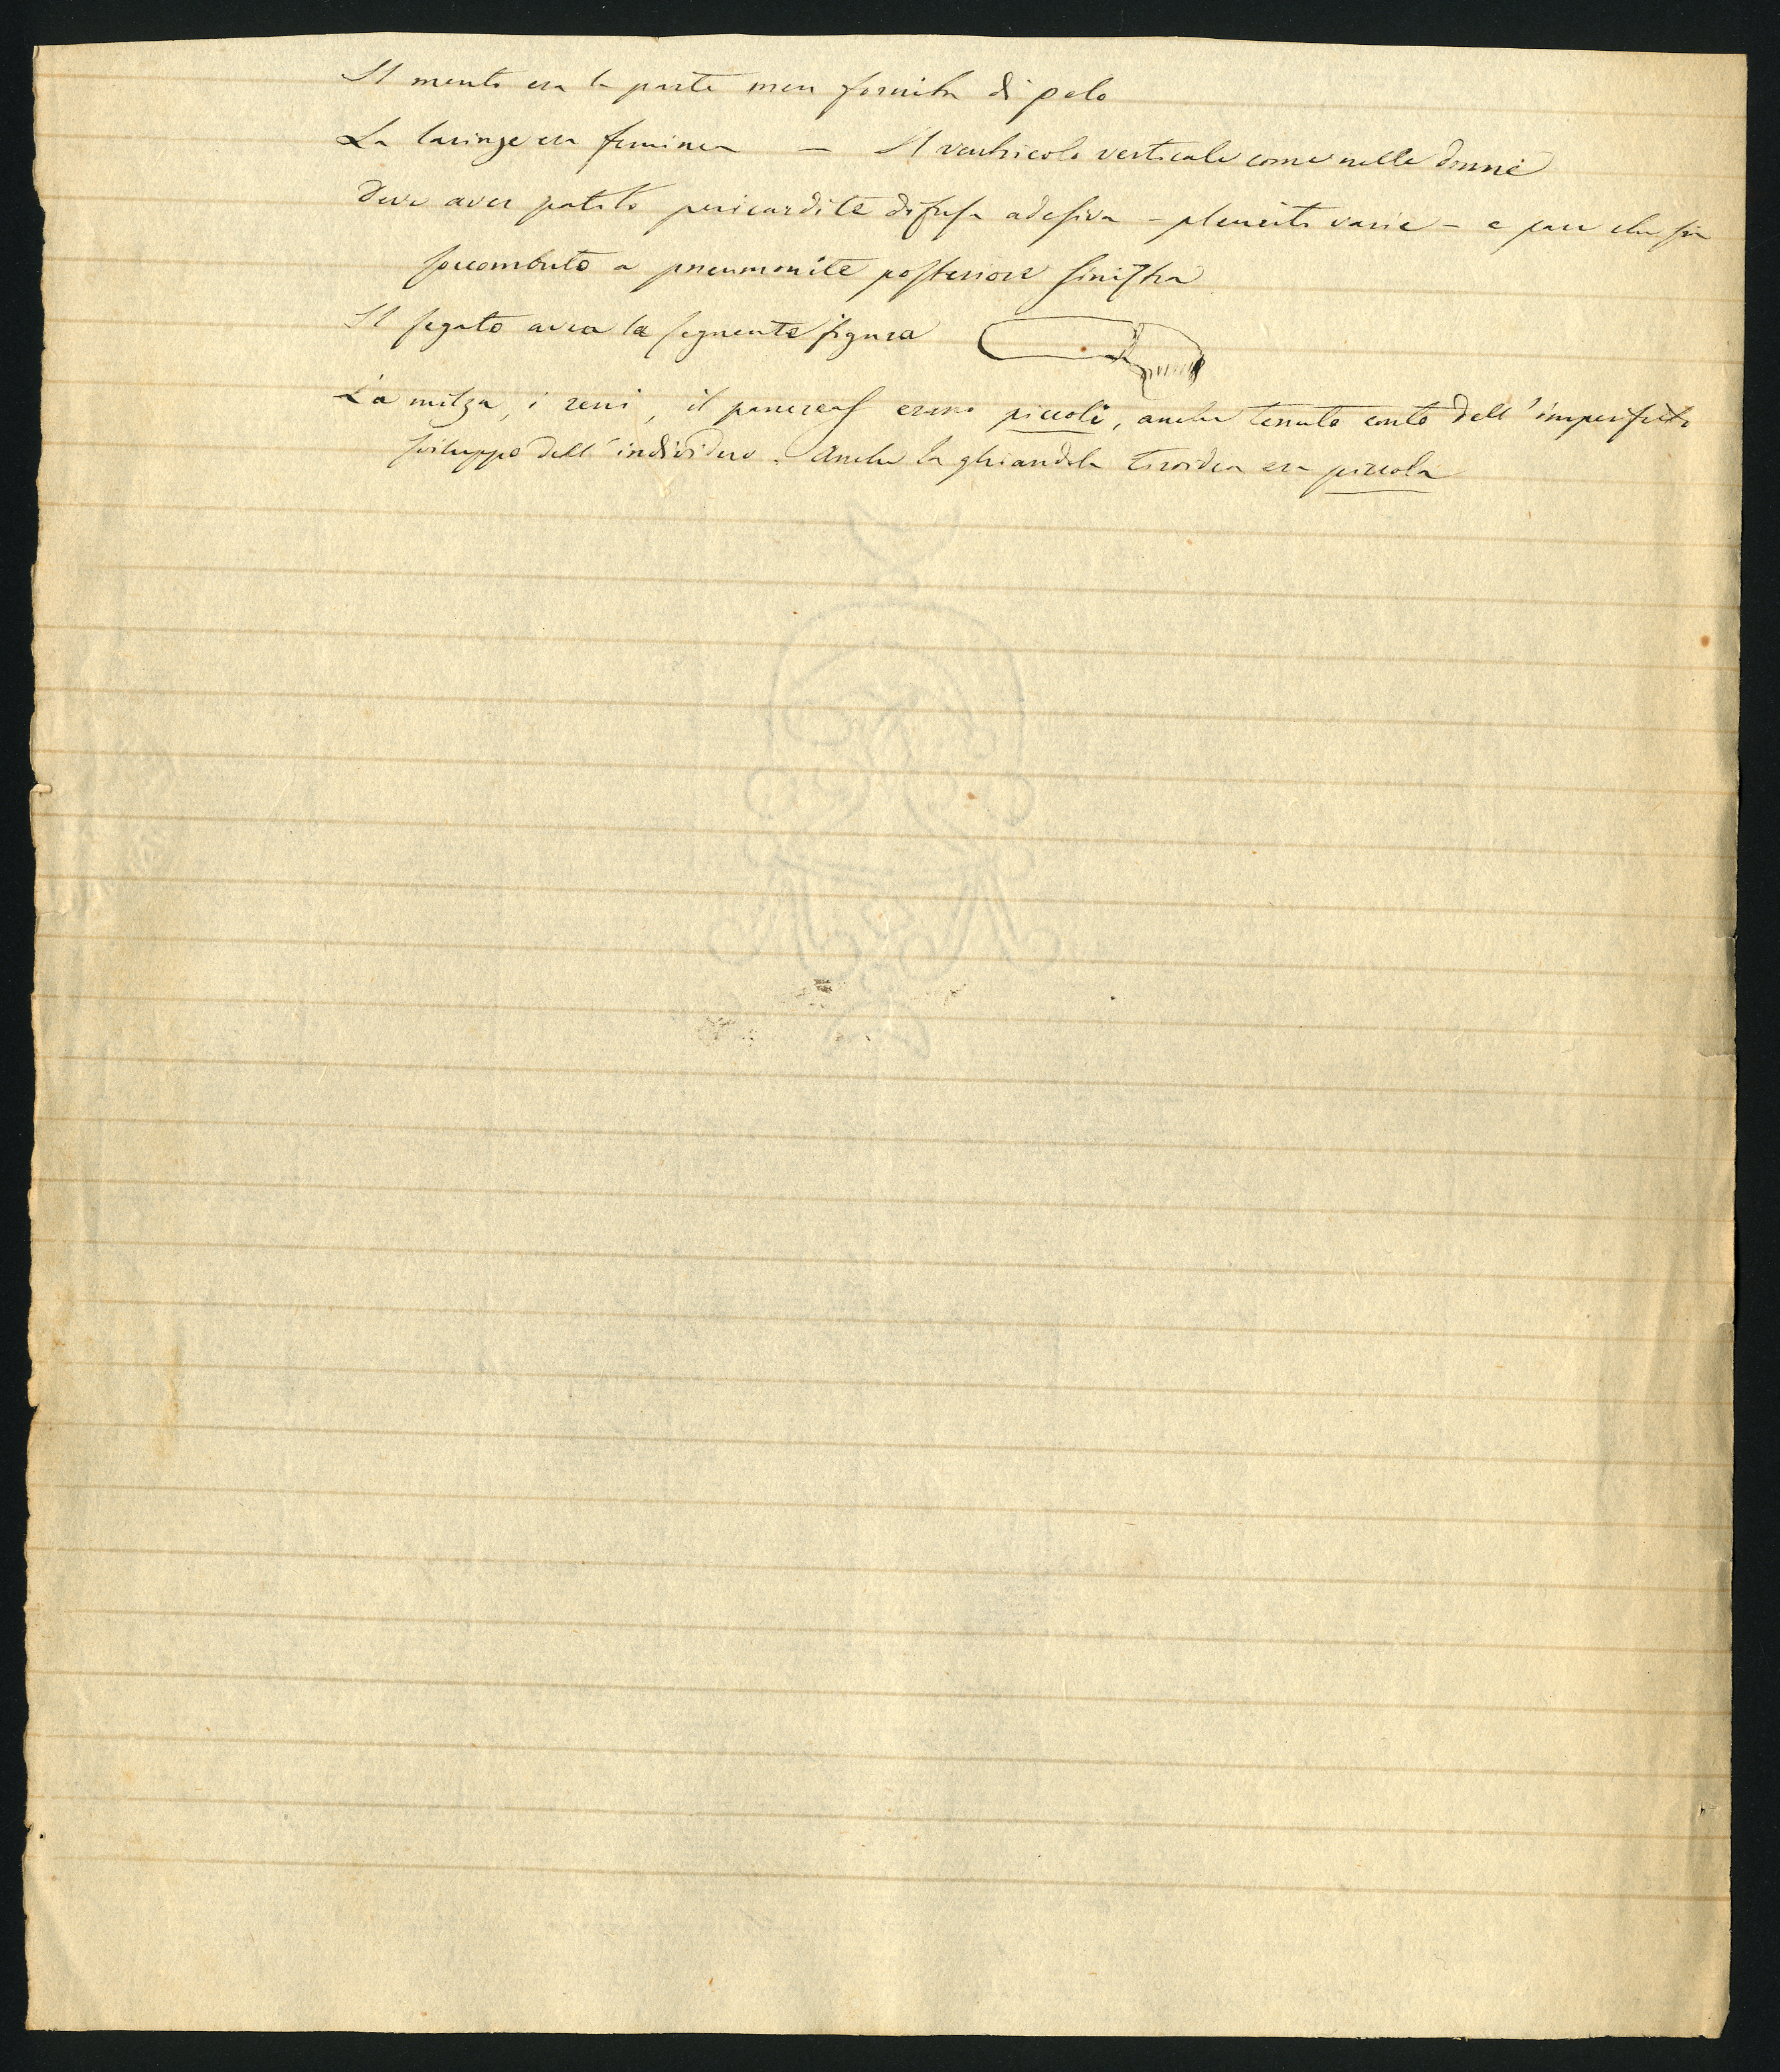 Il mento era la parte men fornita di pelo
La laringe era feminea — Il ventricolo verticale come nelle donne
Deve aver patito pericardite difusa adesiva – pleuriti varie – e pare che sia
soccombuto a pneumonite posteriore sinistra
Il fegato avea la seguente figura
La milza, i reni, il pancreas erano piccoli, anche tenuto conto dell'imperfetto
sviluppo dell'individuo. Anche la ghiandola tiroidea era piccola